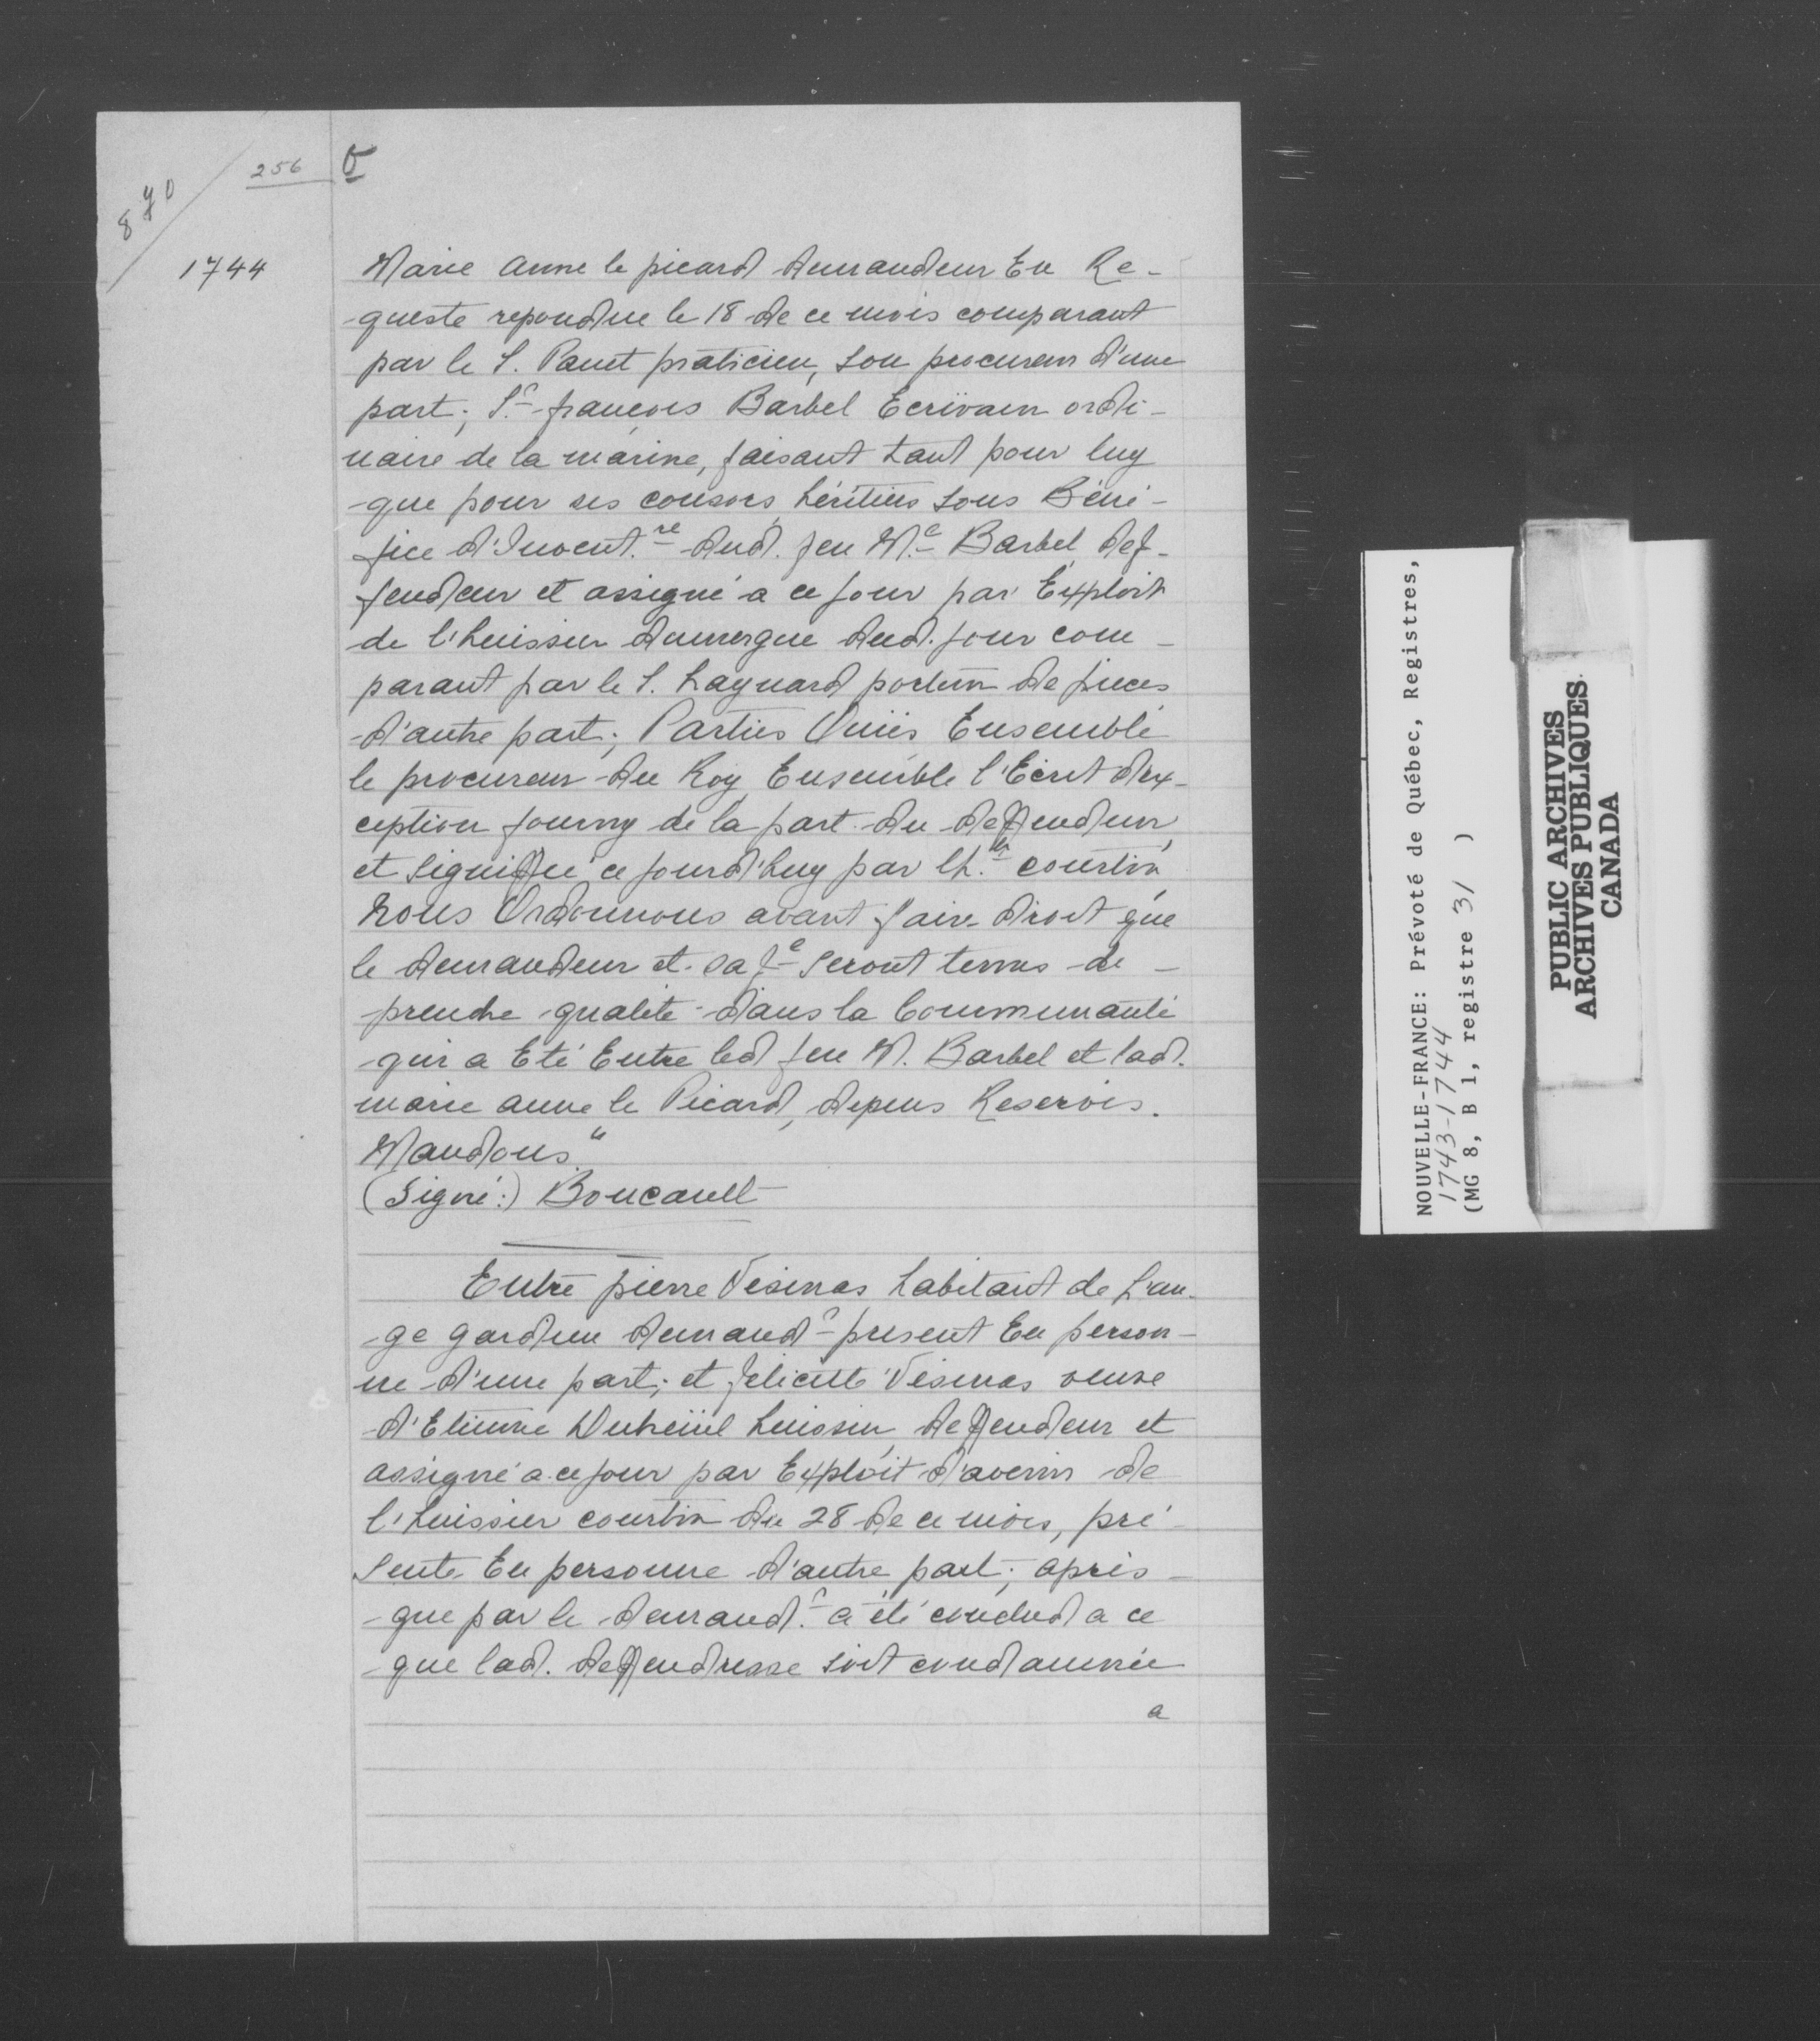 870
256
1744
Marie anne le picard demandeur En Re-
-queste repondue le 18 de ce mois comparant
par le S. Panet praticien, son procureur d'une
part; Sr françois Barbel Ecrivain ordi-
naire de la marine, faisant tant pour luy
que pour ses consors, héritiers sous Béné-
fice d'Invent.re dud. feu M.e Barbel, def-
fendeur et assigné a ce jour par Exploit
de l'huissier dauvergne dud. jour com-
parant par le S. Laguard porteur de pieces
d'autre part; Parties Ouïes Ensemble
le procureur du Roy, Ensemble l'Ecrit dex-
ception fourny de la part du deffendeur,
et signiffié ce jourd'huy par Lh.er courtin,
Nous Ordonnons avant faire droit que
le demandeur et sa f.e seront tenus de
prendre qualité dans la Communauté
qui a Eté Entre led feu M. Barbel et lad.
marie anne le Picard, depens Reservés.
Mandons"
(Signé:) Boucault
Entre pierre Vesinas habitant de L'an-
ge gardien demand.r present En person-
ne d'une part; et felicité Vesinas veuve
d'Etienne Dubreüil huissier, deffendeur et
assigné a ce jour par Exploit d'avenir de
l'huissier courtin du 28 de ce mois, pré-
sente En personne d'autre part; après
que par le demand.r a été conclud a ce
que lad. deffendresse soit condamnée
a
NOUVELLE-FRANCE: Prévoté de Québec, Registres,
1743-1744
(MG 8, B 1, registre 31 )
PUBLIC ARCHIVES
ARCHIVES PUBLIQUES
CANADA